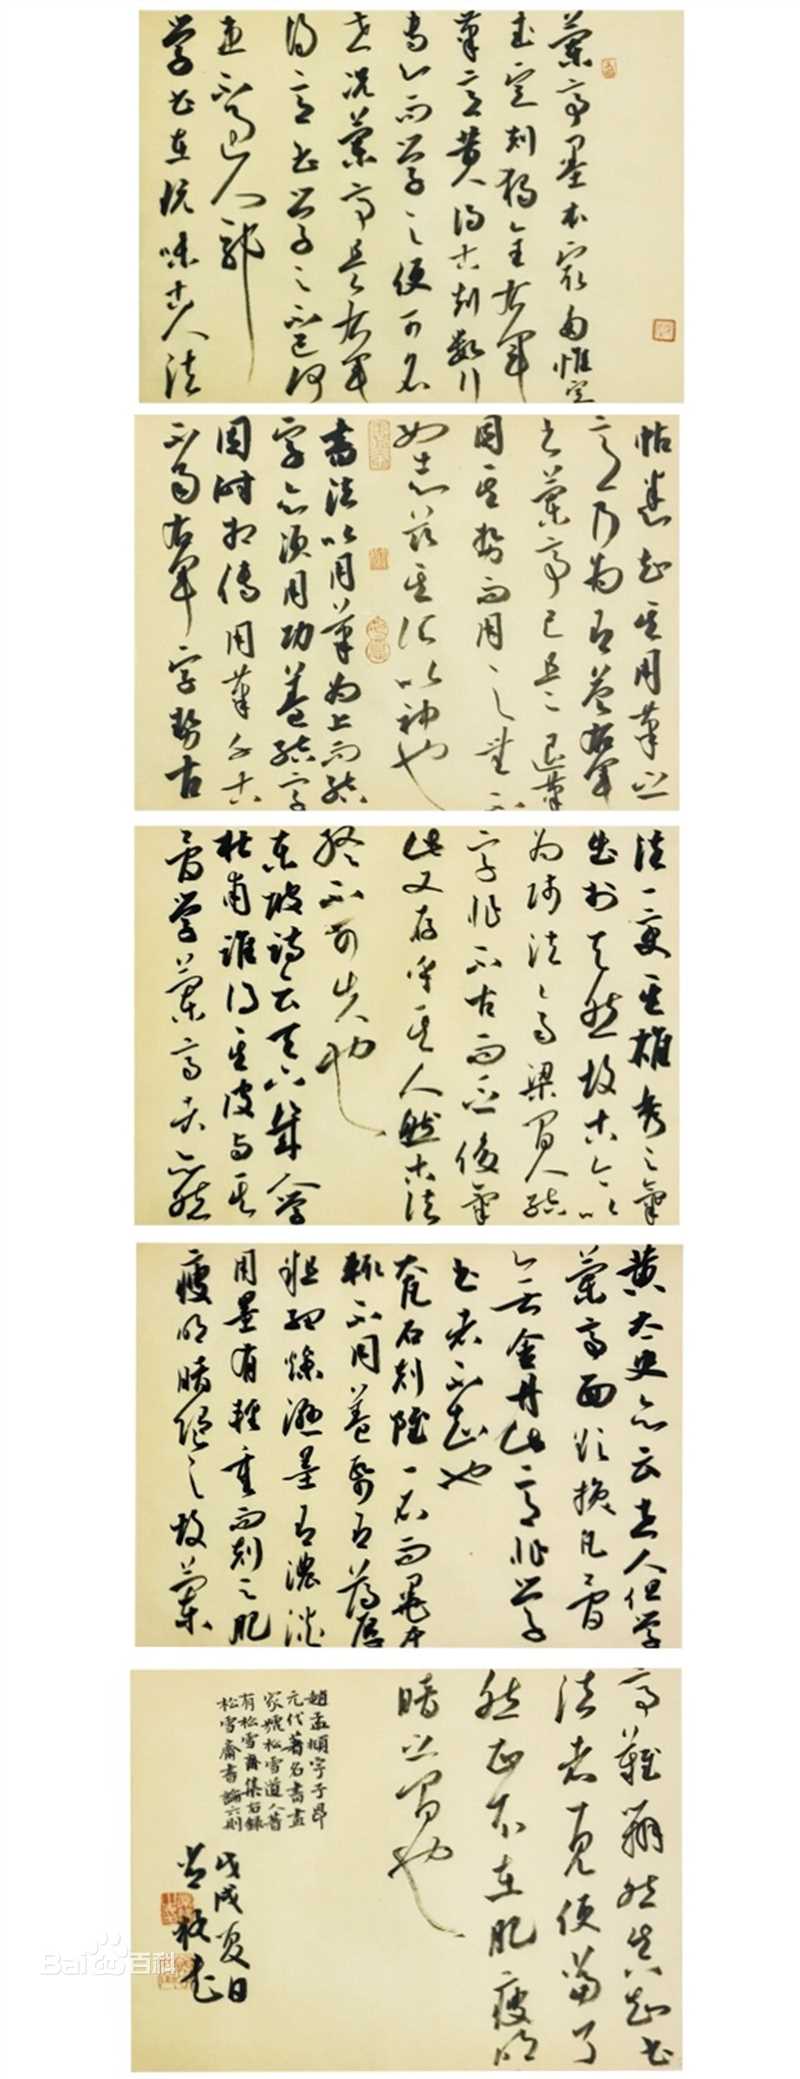 蘭亭墨本最多惟定
武定刻獨全右軍
筆意昔人得古刻數行
專心而學之便可名
世況蘭亭是右軍
得意書學之不已何
患不過人耶
學書在玩味古人法
帖悉知其用筆之
意乃為有益右軍
書蘭亭已是退筆
因其勢而用之無不
如志茲其所以神也
書法以用筆為上而結
字亦須用功蓋結字
因時相傳用筆千古
不易右軍字勢古
法一變其雄秀之氣
出於天然故古今以
為師法齊梁間人結
字非不古而乏俊氣
此又存乎其人然古法
終不可失也
東坡詩云天下幾人學
杜甫誰得其皮與其
骨學蘭亭者亦然
黃太史亦云世人但學
蘭亭面欲換凡骨
無金丹此意非學
書者不知也
大凡石刻雖一石而墨本
輒不同蓋紙有薄厚
粗細燥濕墨有濃淡
用墨有輕重而刻之肥
瘦明暗隨之故蘭
亭難辨然真知書
法者一見便當了
然正不在肥瘦明
暗之間也
趙孟頫字子昂
元代著名書畫
家號松雪道人著
有松雪齋集右錄
松雪齋書論六則
戊戌夏日
Baidu百科